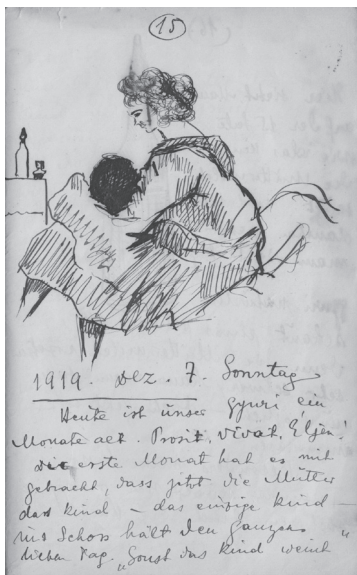 15
1919. Dez. 7. Sonntag
Heute ist unser Gyuri ein
Monate alt. Prosit, vivat, Eljen!
Die erste Monat hat es mit
gebracht, dass jetzt die Mutter
das Kind – das einzige Kind –
ins Schoss hält den ganzen
lieben Tag. „Sonst das Kind weint"